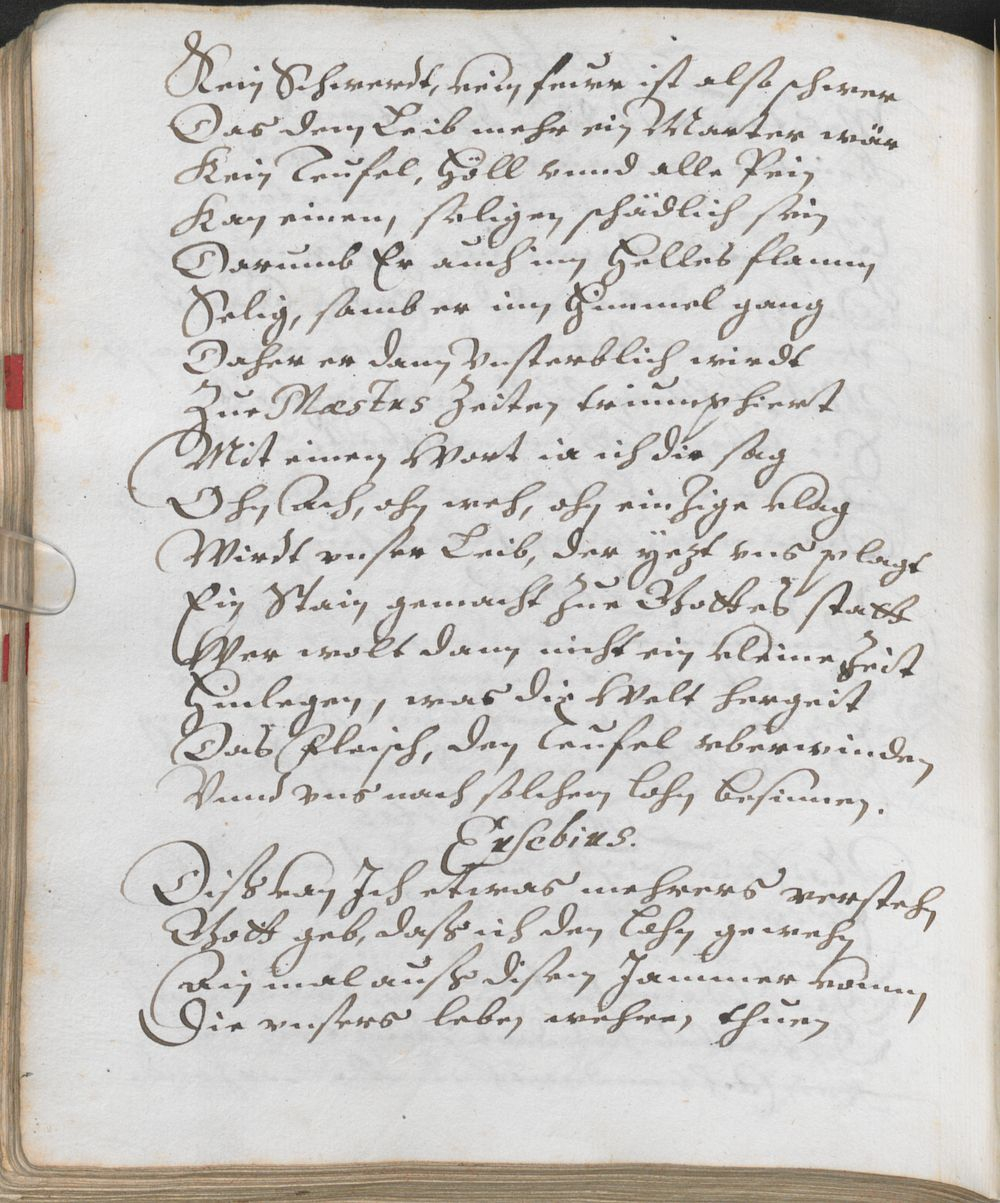 Kein Schwerdt, kein feuer ist also schwer
Das dem Leib mehr ein Marter wär
Kein Teufel, Höll vnnd alle Pein
Kan einem seligen schädlich sein
Darumb Er auch inn Helles flamm
Selig, samb er im Himmel gang
Daher er dann Vnsterblich wirdt
Zue Mæstus Zeiten triumphiert
Mit einem Wort ia ich dir sag
Ohn Ach, ohn weh, ohn einzige klag
Wirdt vnser Leib, der yezt vns plagt
Ein Stain gemacht zue Gottes statt
Wer wolt dann nicht ein kleine Zeit
Hinlegen, was die Welt hergeit
Das Fleisch, den Teufel vberwinden
Vnnd vns nach solchem lohn besinnen.
Eusebius.
Diss kan Ich etwas mehrers verstehn
Gott geb, dass ich den Lohn
Ainmal auss disem Jammer komm
Die vnsers leben wehren thuen